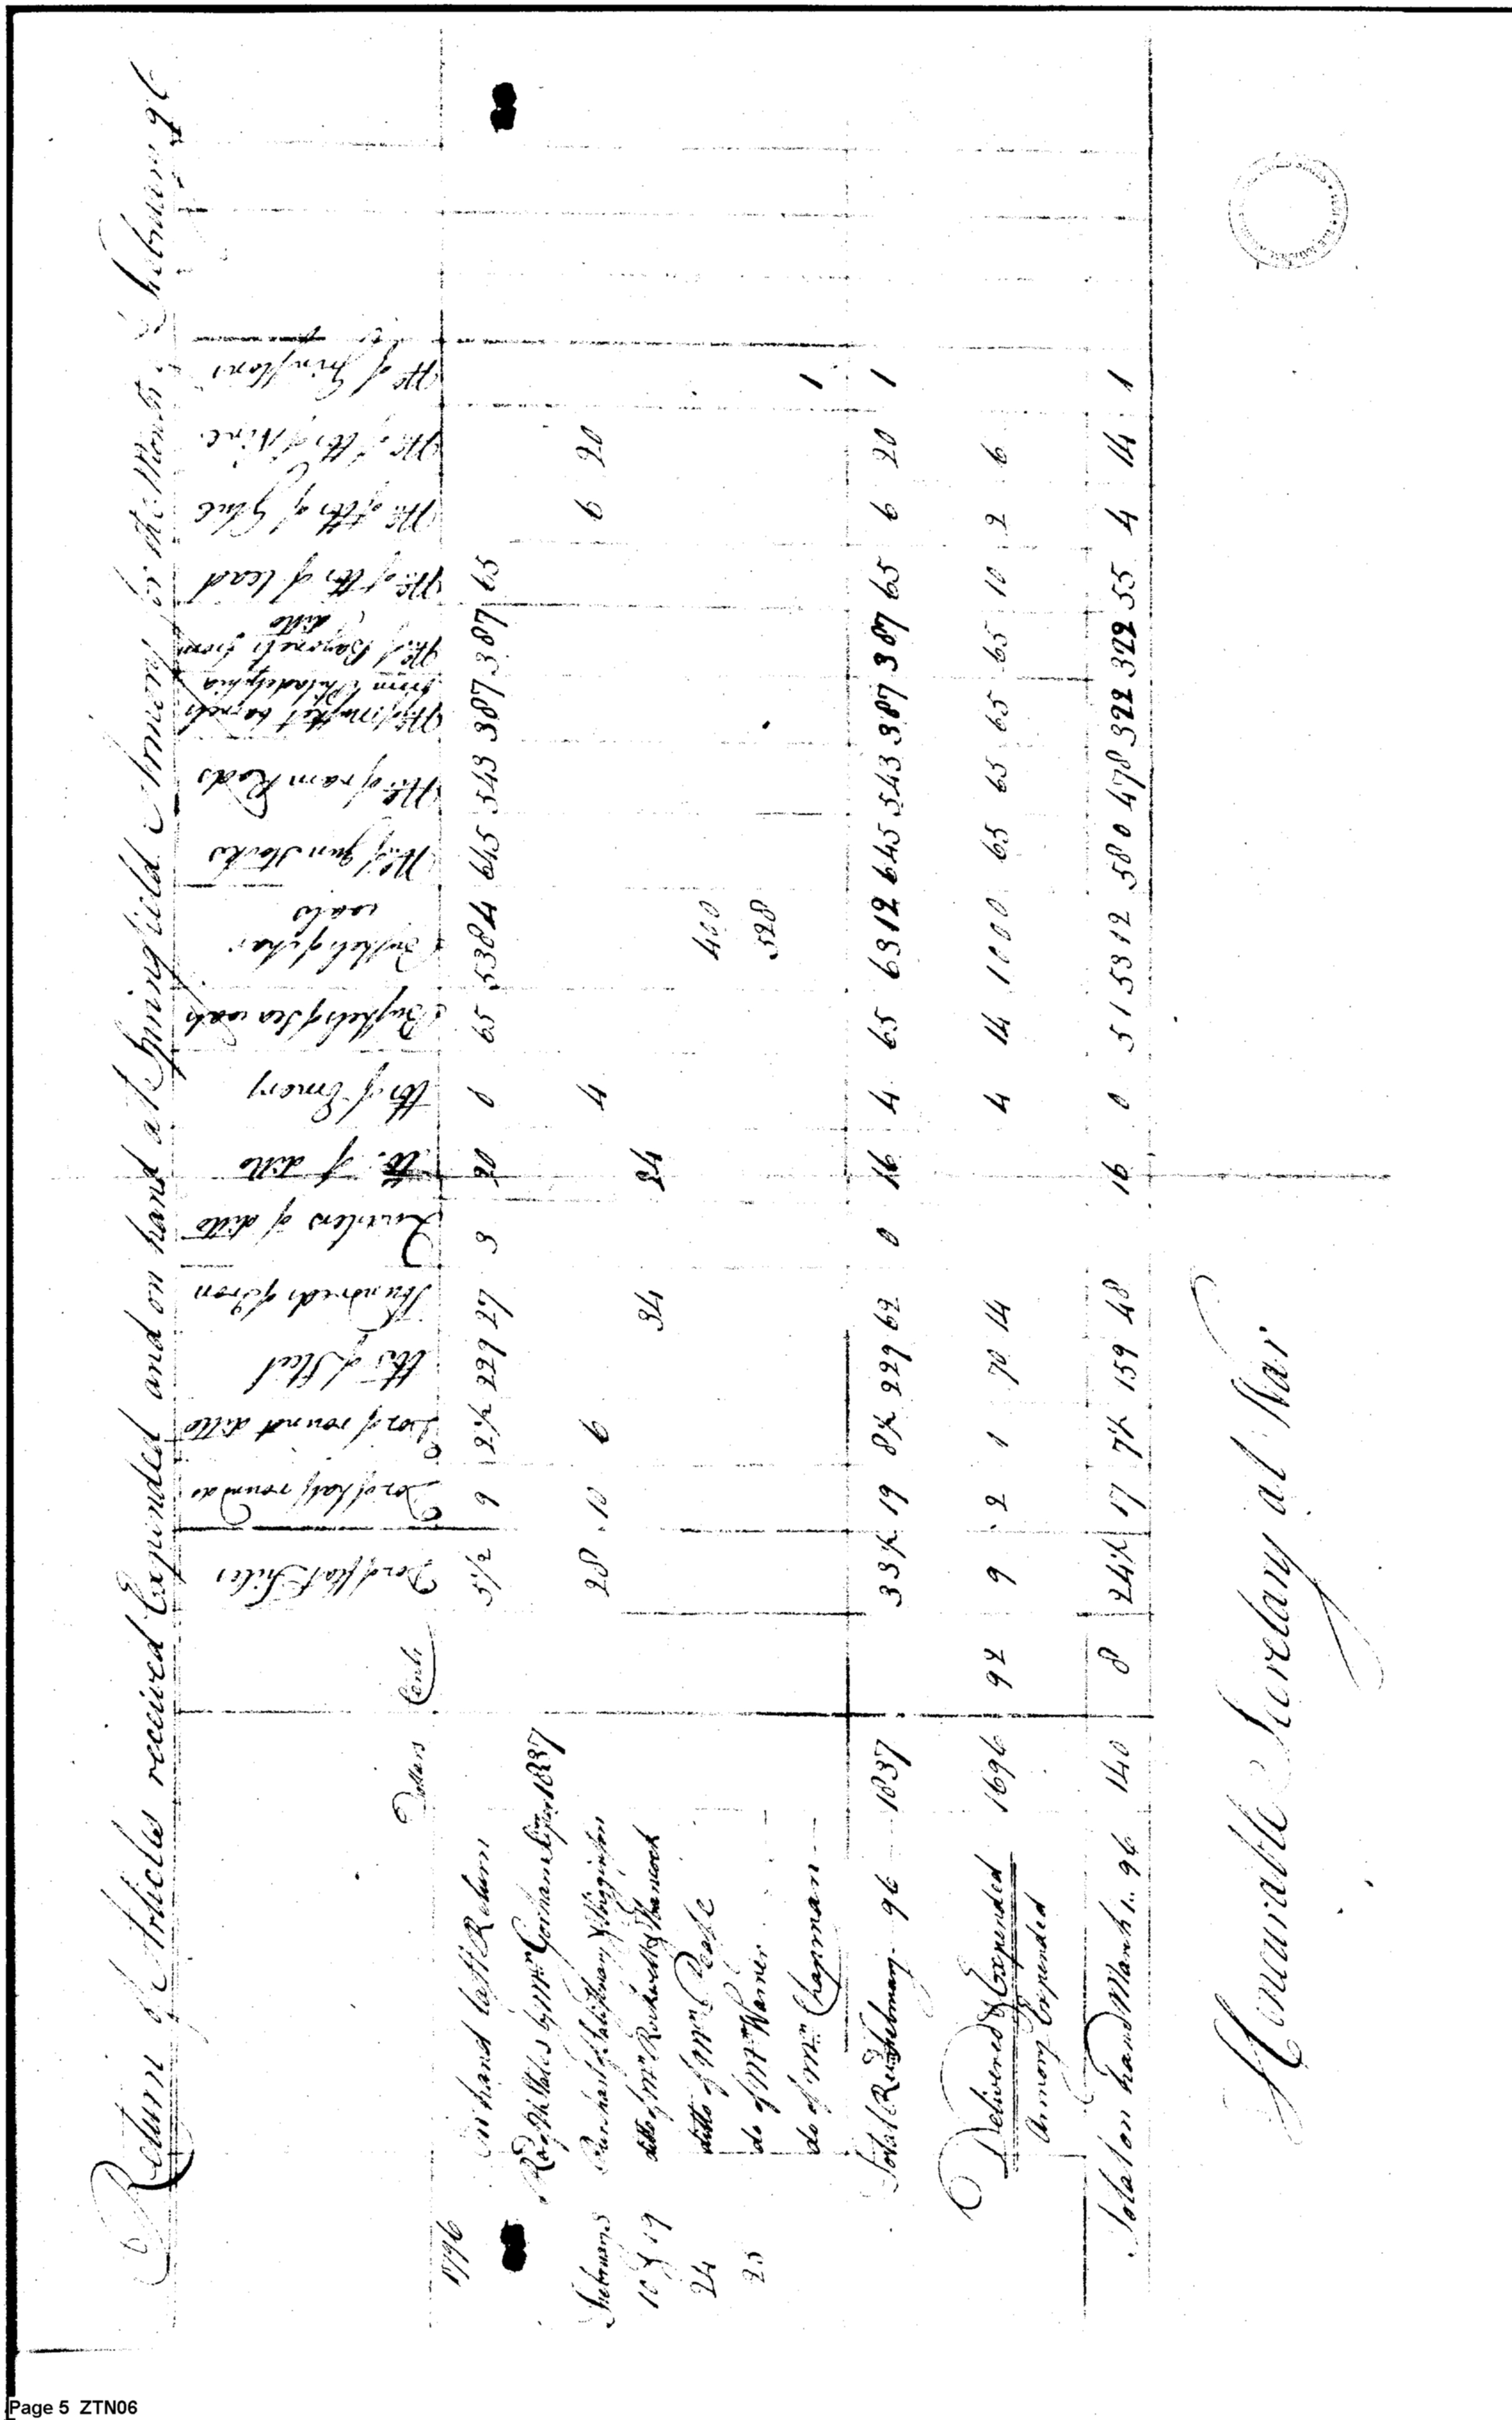 Return of Articles received Expended and on hand at Springfield Armory for the Month of February 96
Dollars Cents Doz of flat Files Doz of half round do Doz of round ditto lbs of Steel Hundreds of Iron Quarters of ditto lb. of ditto lbs of Emery Bushels of Sea coals Bushels of char coals No. of gun Stocks No. of ram Rods No. of musket barrels from Philadelphia No. of Bayonets from ditto No. of lbs of Lead No. of lbs of Glue No. of lbs of No. of Grinstons
1796 On hand last Return 5½ 9 2½ 229 27 3 20 0 65 5384 645 543 387 387 65
by Mr Gorham 1837
February 5 Purchased of Salisbury & Higginson 28 10 6 4 6 20
10 & 19 ditto of Mr Rockwell & Hancock 34 24
24 ditto of Mr Pease 400
25 do of Mr Warner 528
do of Mr Chapman 1
Total Recd February 96 1837 33½ 19 8½ 229 62 0 16 4 65 6312 645 543 387 387 65 6 20 1
Delivered & Expended 1696 92 9 2 1 70 14 4 14 1000 65 65 65 65 10 2 6
Armory Expended
Total on hand March 1.. 96 140 8 24½ 17 7½ 159 48 16 0 51 5312 580 478 322 322 55 4 14 1
Honourable Secretary at War
Page 5 ZTN06